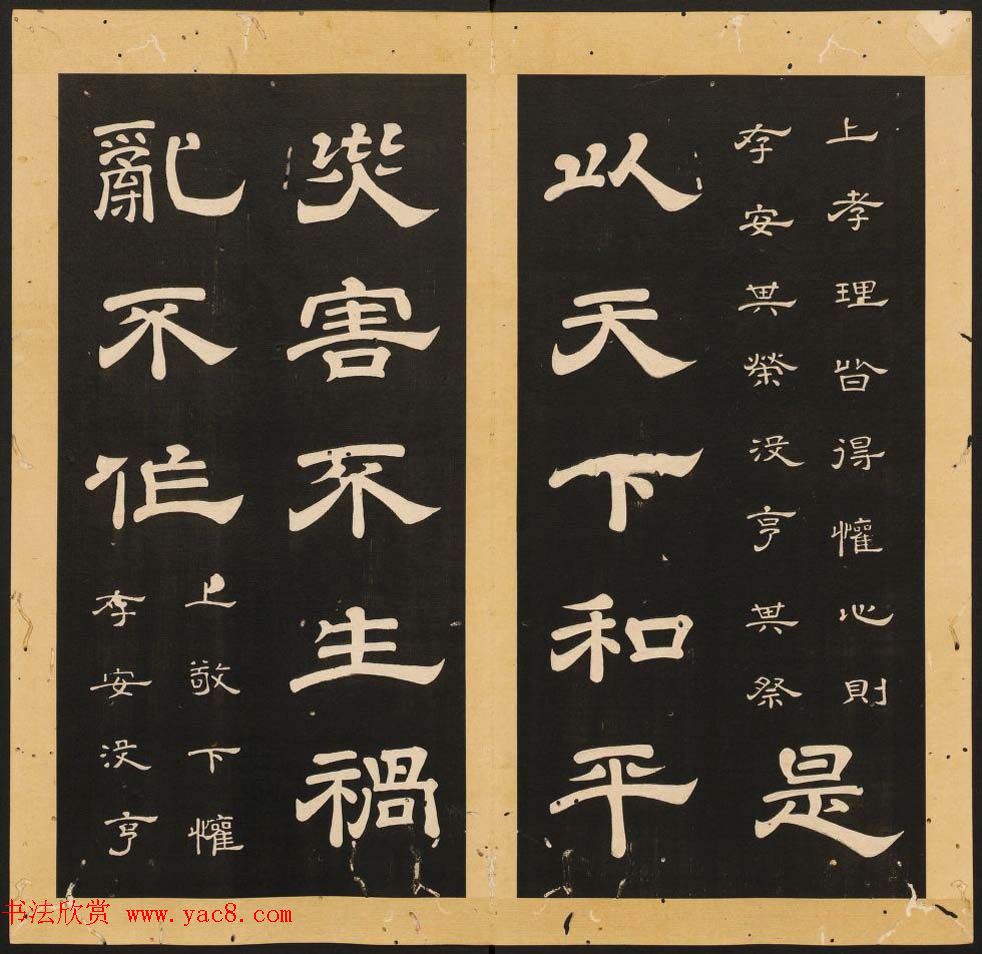 上孝理皆得懽心則
存安其榮没亨其祭
是
以天下和平
災害不生禍
亂不作
上敬下懽
存安没亨
书法欣赏 www.yac8.com